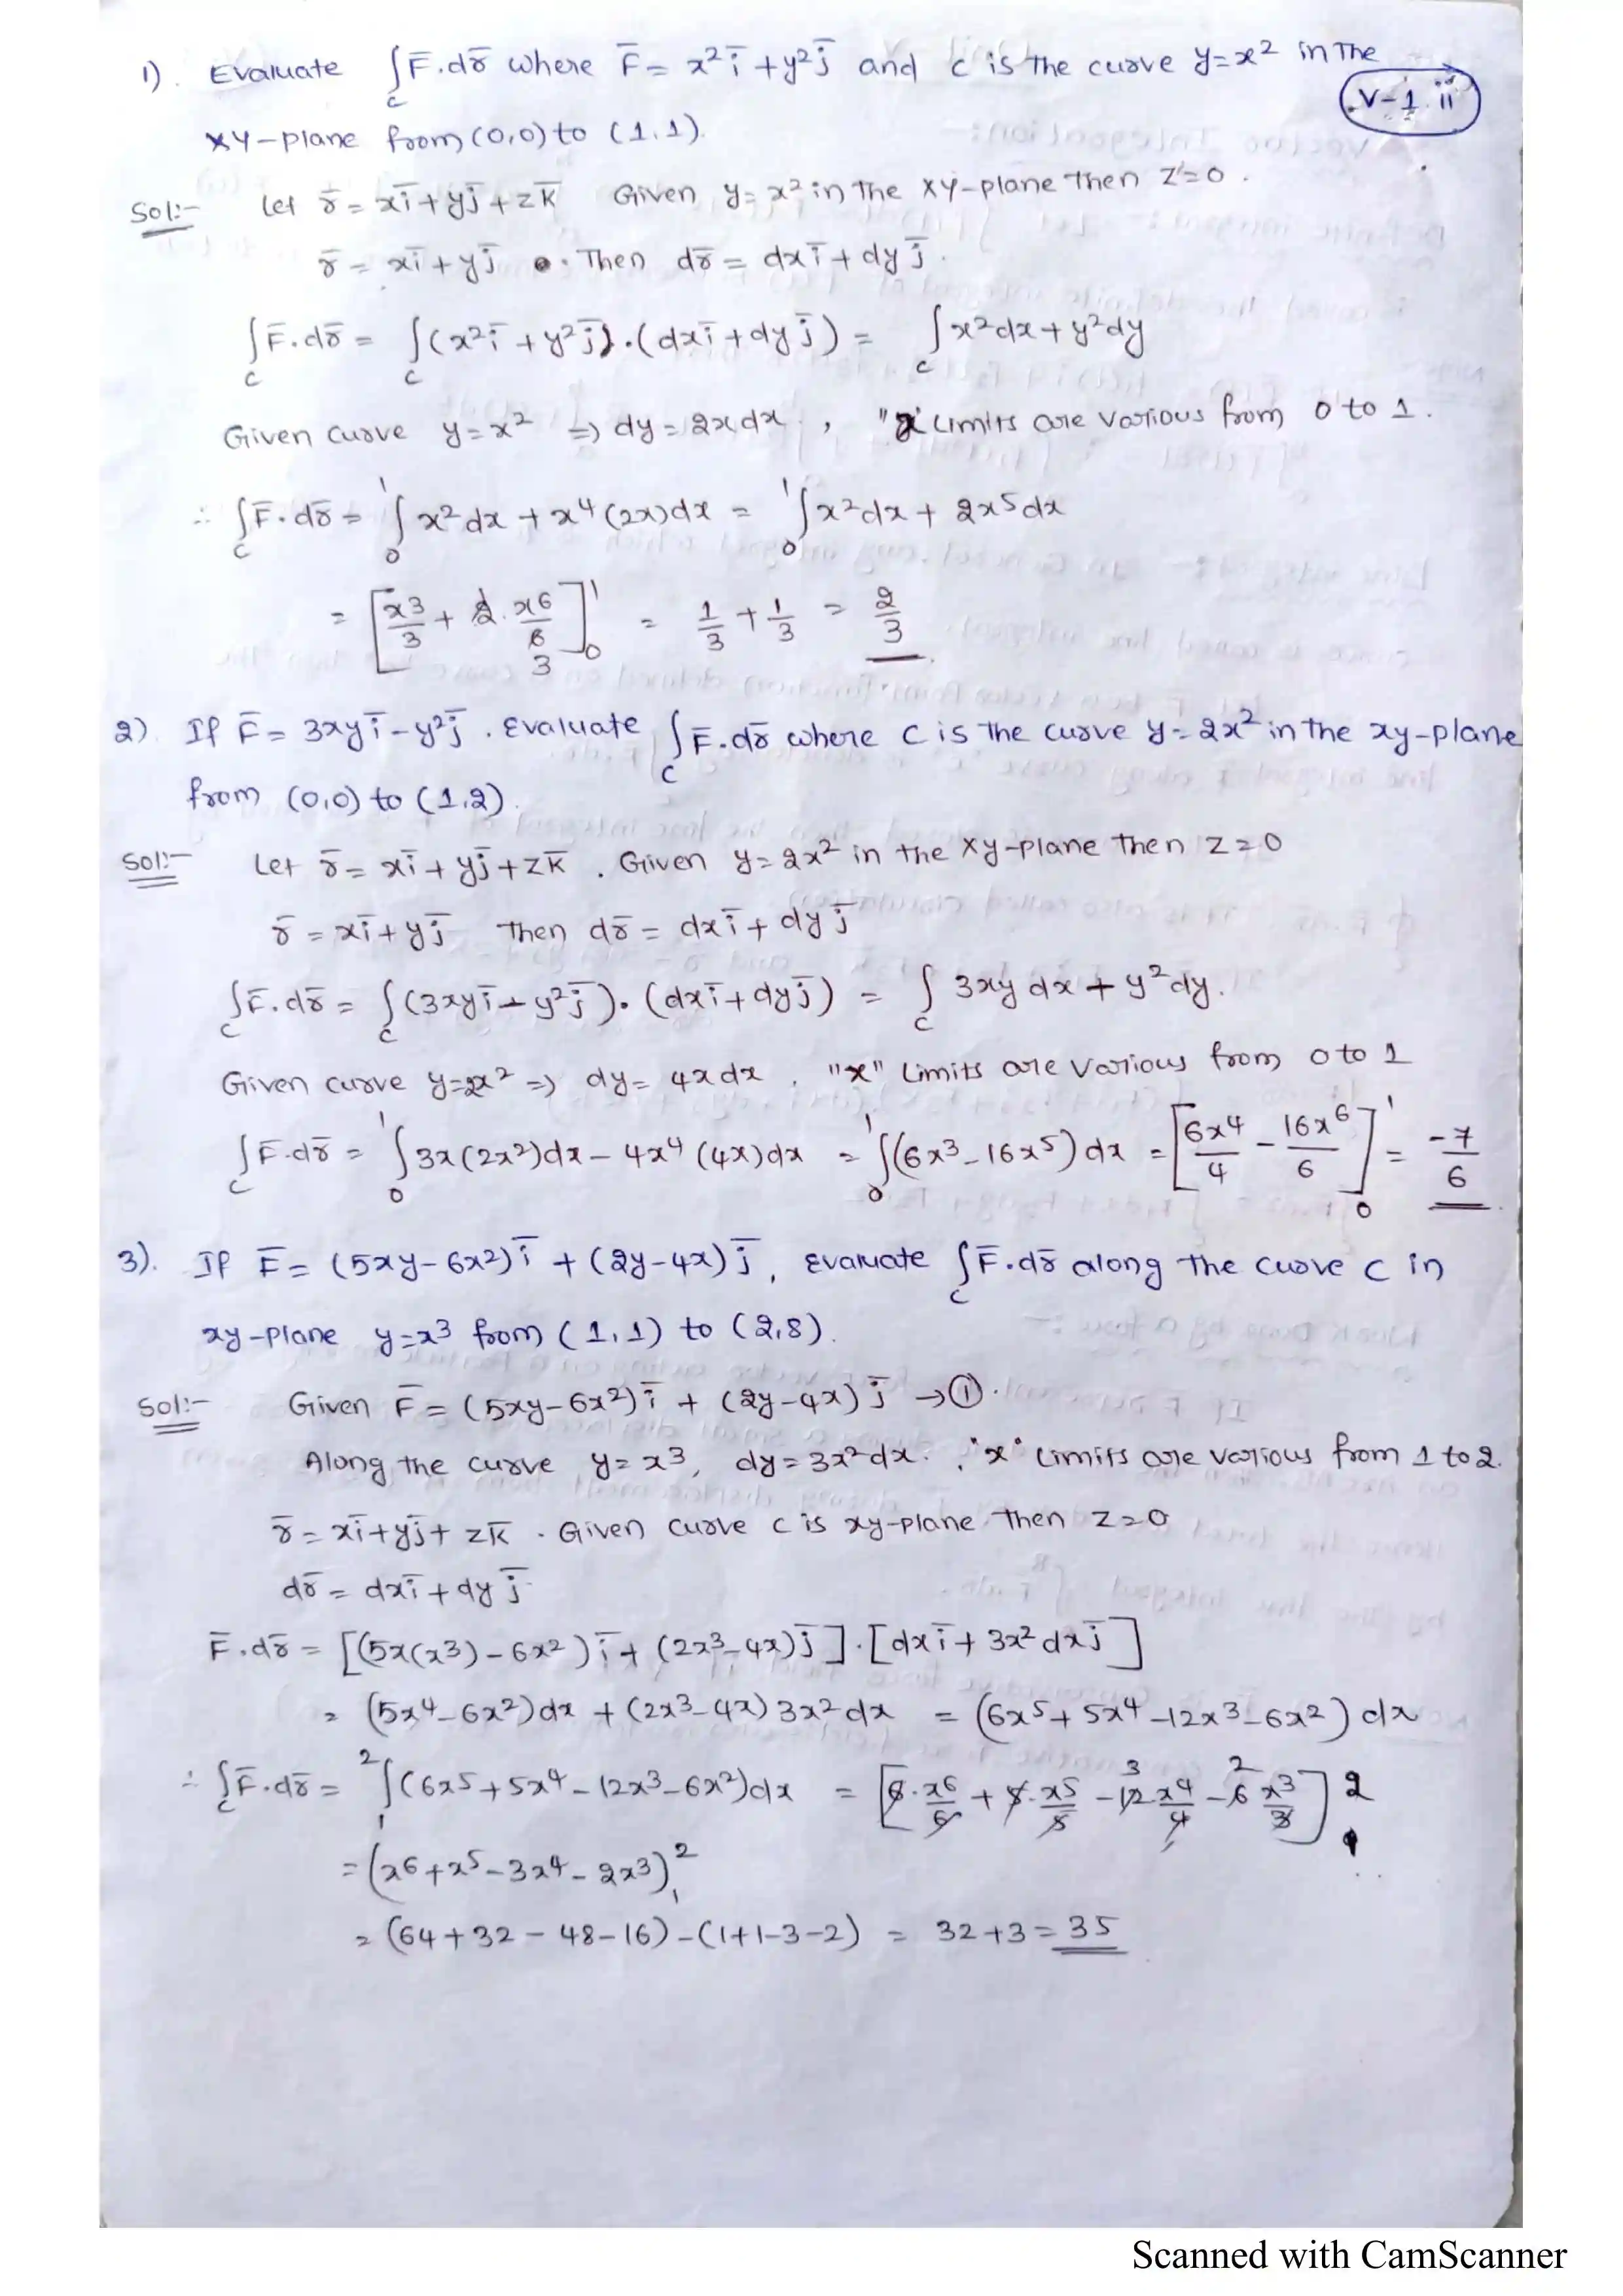 1). Evaluate ∫_C F̄.dr̄ where F̄ = x² ī + y² j̄ and C is the curve y=x² in the
V-1.ii
XY-plane from (0,0) to (1,1).
Sol:- Let r̄ = xī + yj̄ + zk̄ Given y=x² in the XY-plane then z=0.
r̄ = xī + yj̄ . Then dr̄ = dxī + dyj̄.
∫_C F̄.dr̄ = ∫_C (x²ī + y²j̄).(dxī + dyj̄) = ∫_C x²dx + y²dy
Given curve y=x² ⇒ dy = 2xdx, "x" Limits are various from 0 to 1.
∴ ∫_C F̄.dr̄ = ∫_0^1 x²dx + x⁴(2x)dx = ∫_0^1 x²dx + 2x⁵dx
= [x³/3 + 2.x⁶/6 3]_0^1 = 1/3 + 1/3 = 2/3
2). If F̄ = 3xyī - y²j̄ . Evaluate ∫_C F̄.dr̄ where C is the curve y=2x² in the xy-plane
from (0,0) to (1,2).
Sol:- Let r̄ = xī + yj̄ + zk̄ . Given y=2x² in the xy-plane then z=0
r̄ = xī + yj̄ Then dr̄ = dxī + dyj̄
∫_C F̄.dr̄ = ∫_C (3xyī - y²j̄).(dxī + dyj̄) = ∫_C 3xy dx + y²dy.
Given curve y=2x² ⇒ dy = 4xdx . "x" Limits are various from 0 to 1
∫_C F̄.dr̄ = ∫_0^1 3x(2x²)dx - 4x⁴(4x)dx = ∫_0^1 (6x³-16x⁵)dx = [6x⁴/4 - 16x⁶/6]_0^1 = -7/6
3). If F̄ = (5xy-6x²)ī + (2y-4x)j̄, Evaluate ∫_C F̄.dr̄ along the curve C in
xy-plane y=x³ from (1,1) to (2,8).
Sol:- Given F̄ = (5xy-6x²)ī + (2y-4x)j̄ → ①.
Along the curve y=x³, dy=3x²dx. , "x" Limits are various from 1 to 2.
r̄ = xī+yj̄+zk̄ . Given curve C is xy-plane then z=0
dr̄ = dxī + dyj̄
F̄.dr̄ = [(5x(x³)-6x²)ī + (2x³-4x)j̄].[dxī + 3x²dxj̄]
= (5x⁴-6x²)dx + (2x³-4x)3x²dx = (6x⁵+5x⁴-12x³-6x²)dx
∴ ∫_C F̄.dr̄ = ∫_1^2 (6x⁵+5x⁴-12x³-6x²)dx = [6.x⁶/6 + 5.x⁵/5 - 12 3 x⁴/4 - 6 2 x³/3]_1^2
= (x⁶+x⁵-3x⁴-2x³)_1^2
= (64+32-48-16)-(1+1-3-2) = 32+3 = 35
Scanned with CamScanner